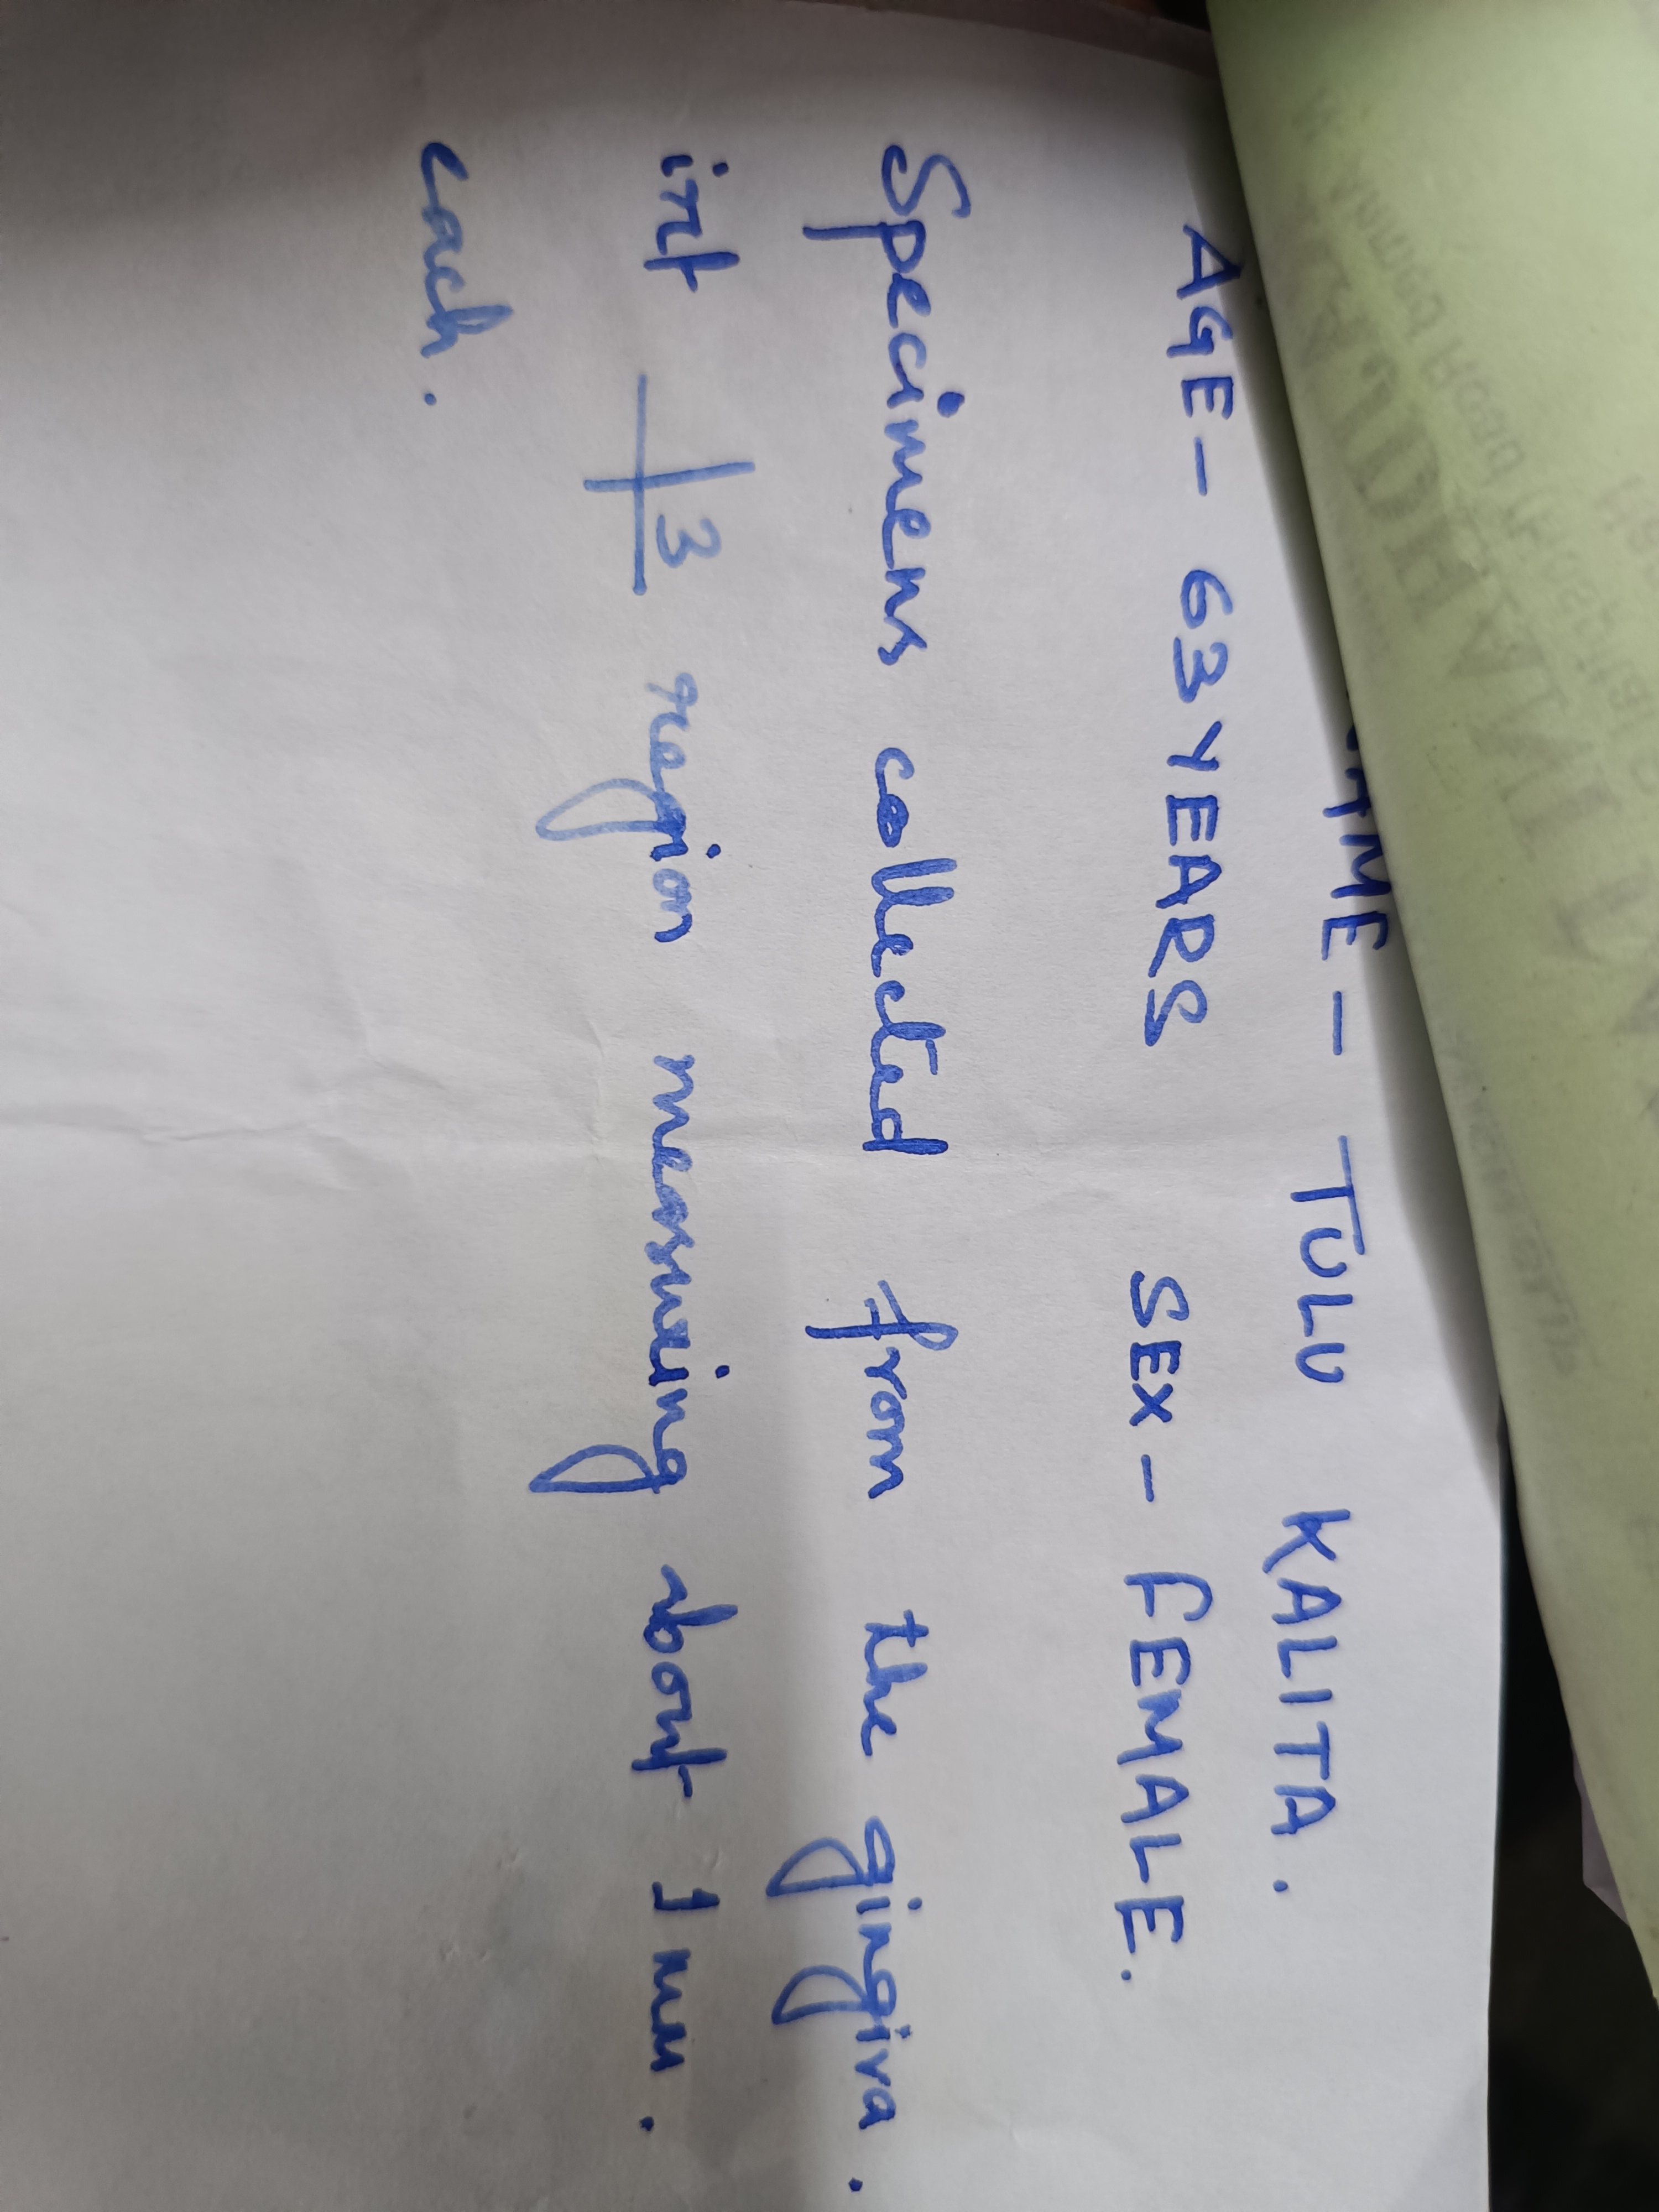 NAME - TULU KALITA.
AGE - 63 YEARS SEX - FEMALE.
Specimens collected from the gingiva.
irt 3 region measuring about 1 mm.
each.